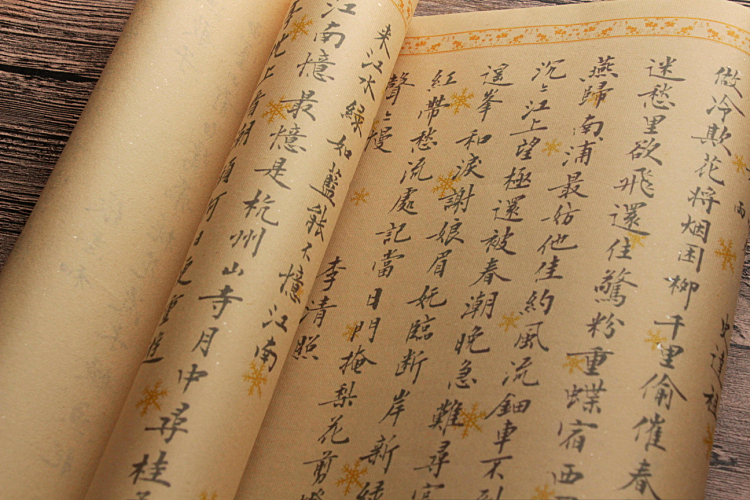 雨 史達祖
做冷欺花將烟困柳千里偷催春
迷愁里欲飛還住驚粉重蝶宿西
燕歸南浦最妨他佳約風流鈿車不到
沉〻江上望極還被春潮晚急難尋官
遥峯和淚謝娘眉嫵臨斷岸新綠
紅帶愁流處記當日門掩梨花剪燈
聲〻慢 李清照
來江水綠如藍能不憶江南
江南憶最憶是杭州山寺月中尋桂
上看潮頭何日更重遊